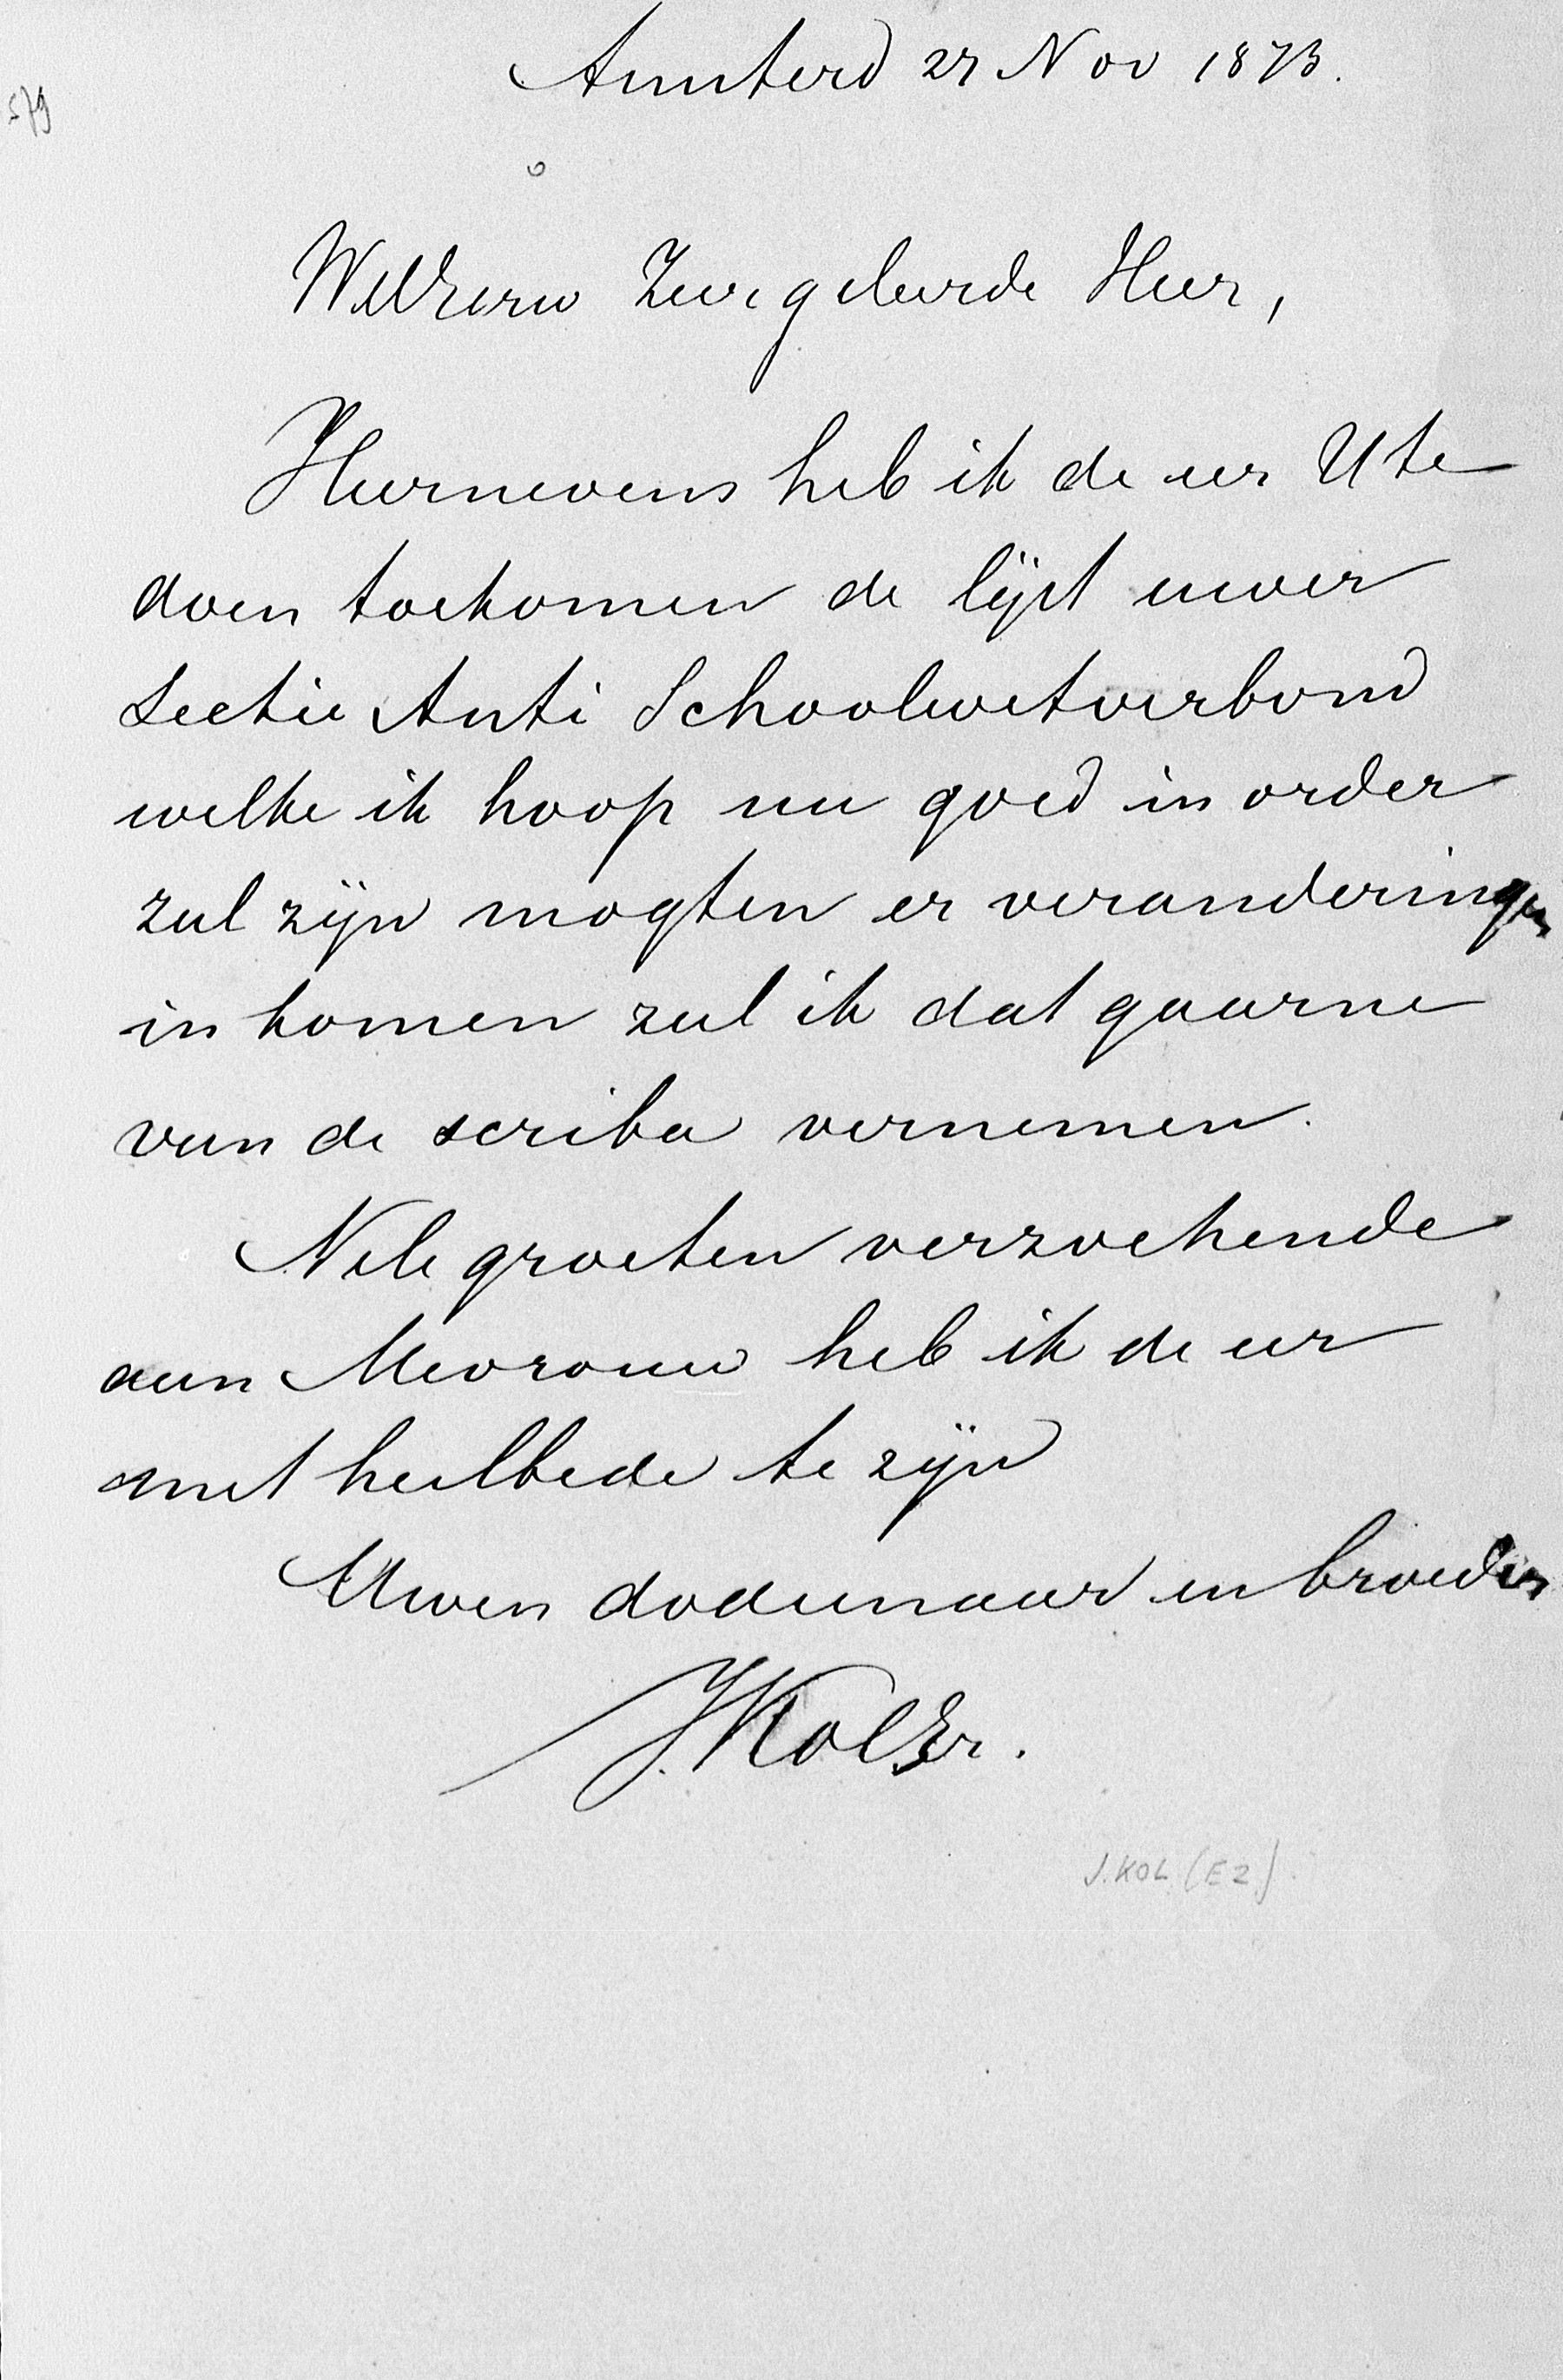 Amsterd 27 Nov 1873.
579
WelEerw Zeergeleerde Heer,
Hiernevens heb ik de eer U te
doen toekomen de lijst uwer
Sectie Anti Schoolwetverbond
welke ik hoop nu goed in order
zal zijn mogten er veranderingen
in komen zal ik dat gaarne
van de scriba vernemen.
Na groeten verzoekende
aan Mevrouw heb ik de eer
met heilbede te zijn
Uwen dw dienaar en broeder
J. Kol Ez.
J. KOL (EZ).